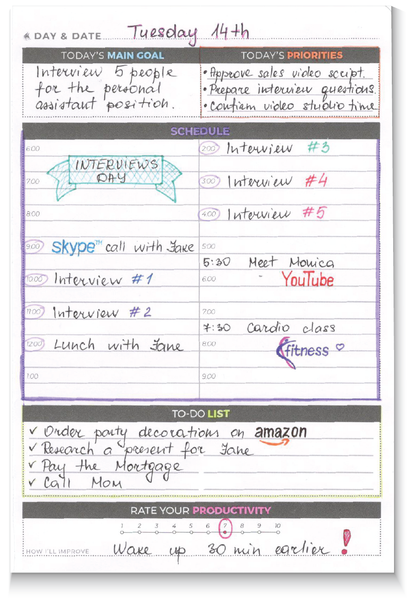 DAY & DATE Tuesday 14th
TODAY'S MAIN GOAL
Interview 5 people
for the personal
assistant position.
TODAY'S PRIORITIES
• Approve sales video script.
• Prepare interview questions.
• Confirm video studio time
SCHEDULE
6:00
INTERVIEWS
DAY
7:00
8:00
9:00 skype call with Jane
10:00 Interview #1
11:00 Interview #2
12:00 Lunch with Jane
1:00
2:00 Interview #3
3:00 Interview #4
4:00 Interview #5
5:00
5:30 Meet Monica
6:00 YouTube
7:00
7:30 Cardio class
8:00 fitness
9:00
TO-DO LIST
✓ Order party decorations on amazon
✓ Research a present for Jane
✓ Pay the Mortgage
✓ Call Mom
RATE YOUR PRODUCTIVITY
1 2 3 4 5 6 7 8 9 10
HOW I'LL IMPROVE Wake up 30 min earlier !